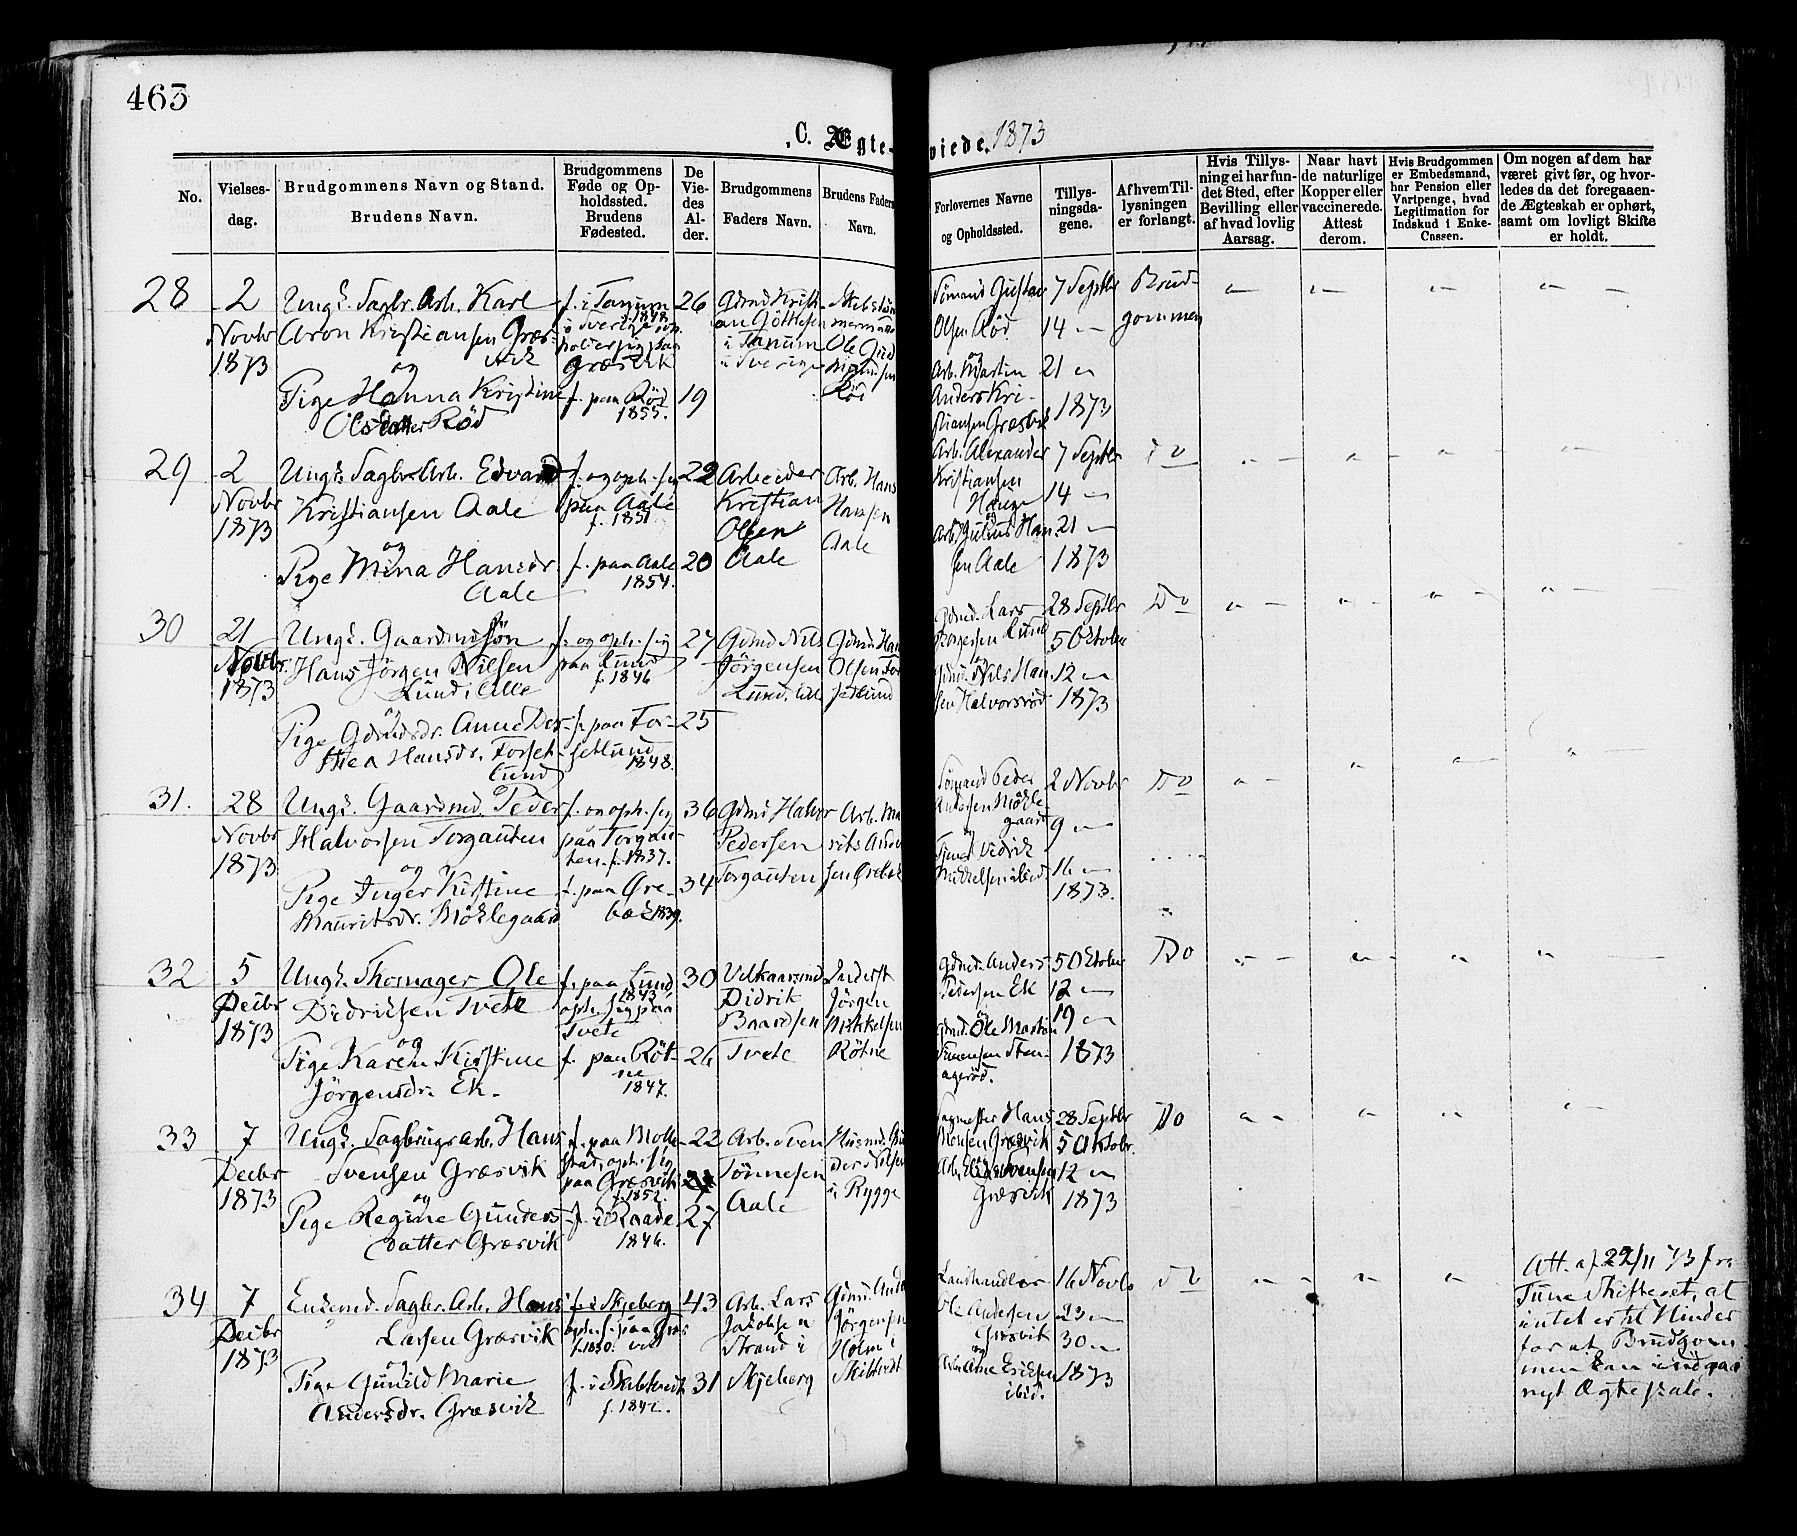 463
C. Ægteviede. 1873
No.
Vielsesdag.
Brudgommens Navn og Stand.
Brudens Navn.
Brudgommens Føde og Opholdssted.
Brudens Fødested.
De Viedes Alder.
Brudgommens Faders Navn.
Brudens Faders Navn.
Forlovernes Navne og Opholdssted.
Tillysningsdagene.
Af hvem Tillysningen er forlangt.
Hvis Tillysning ei har fundet Sted, efter Bevilling eller af hvad lovlig Aarsag.
Naar havt de naturlige Kopper eller vaccinerede. Attest derom.
Hvis Brudgommen er Embedsmand, har Pension eller Vartpenge, hvad Legitimation for Indskud i Enke-Cassen.
Om nogen af dem har været givt før, og hvorledes da det foregaaende Ægteskab er ophørt, samt om lovligt Skifte er holdt.
28
2
Novbr
1873
Ungk. Sagbr. Arb. Karl
Aron Kristiansen Græs-
vik
og
Pige Hanna Kristine
Olsdatter Rød
f. i Tanum
1848
i Sverige
Græsvik
f. paa Rød
1855.
26
19
Gdmd Krist-
an
i Tanum
i Sverige
Ole
Rød
Sømand Gustav
Olsen Rød
og
Arb. Martin
Anders Kri-
stiansen Græsvik
7 Septbr
14 —
21 —
1873
Brud-
gommen
29
2
Novbr
1873
Ungk. Sagbr. Arb. Edvard
Kristiansen Aale
og
Pige Mina Hansdr.
Aale
f. og oph. sig
paa Aale
f. 1851
f. paa Aale
1854.
22
20
Arbeider
Kristian
Olsen
Aale
Arb. Hans
Hansen
Aale
Arb. Alexander
Kristiansen
Hauge
og
Arb. Julius Han-
sen Aale
7 Septbr
14 —
21 —
1873
Do
30
21
Novbr.
1873
Ungk. Gaardmdsøn
Hans Jørgen Nilsen
Lund lille
og
Pige Gdmdsdr. Anne Dor-
thea Hansdr. Torset-
lund
f. og oph. sig
paa Lund
f. 1846
f. paa Tor-
setlund
1848.
27
25
Gdmd Nils
Jørgensen
Lund lill
Gdmd. Han
Olsen Tor
setlund
Gdmd. Lars
Borgersen Lund
og
Gdmd. Nils Han-
sen Halvorsrød
28 Septbr
5 Octobr
12 —
1873
Do
31.
28
Novbr
1873
Ungk. Gaardmd. Peder
Halvorsen Torgauten
og
Pige Inger Kirstine
Mauritsdr. Møklegaard
f. og oph. sig
paa Torgau-
ten. f. 1837.
f. paa Øre-
bæk 1839.
36
34
Gdmd Halvor
Pedersen
Torgauten
Arb. Ma
rits Andr
sen Ørebæk
Sømand Peder
Andersen Møkle-
gaard
og
Didrik
Mikkelsen ibid.
2 Novbr
9 —
16 —
1873.
Do
32
5
Decbr
1873
Ungk. Skomager Ole
Didriksen Tvete
og
Pige Karen Kirstine
Jørgensdr. Ek.
f. paa Lund
1843
oph. sig paa
Tvete
f. paa Røt-
ne
1847.
30
26
Didrik
Baardsen
Tvete
Inderst
Jørgen
Mikkelsen
Røtne
Gdmd. Anders
Pedersen Ek
og
Gdmd. Ole Martin
5 Octobr
12 —
19 —
1873
Do
33
7
Decbr
1873
Ungk. Sagbrugsarb. Hans
Svensen Græsvik
og
Pige Regine Gunders-
datter Græsvik
f. paa Molle-
stad, oph. sig
paa Græsvik
f. 1852.
f. i Raade
1846.
22
27
Arb. Sven
Tønnesen
Aale
Husmd. Gu
der Nilsen
i Rygge
Sagmester Hans
Monsen Græsvik
og
Arb. Elias Svensen
Græsvik
28 Septbr
5 Oktobr.
12 —
1873
Do
34
7
Decbr
1873
Enkemd. Sagbr. Arb. Hans
Larsen Græsvik
og
Pige Gunild Marie
Andersdr. Græsvik
f. i Skjeberg
oph. s. paa Græs
f. 1830. vik
f. i Skibtvedt
f. 1842.
43
31
Arb. Lars
Jakobsen
Strand i
Skjeberg
Gdmd. Ande
Jørgensen
Holm i
Skibtvedt
Landhandler
Ole Andersen
Græsvik
og
Arb. Arne Eriksen
ibid.
16 Novbr
23 —
30 —
1873
Do
Att. af 22/11 73 fra
Tune Skifteret, at
intet er til Hinder
for at Brudgom-
men kan indgaa
nyt Ægteskab.